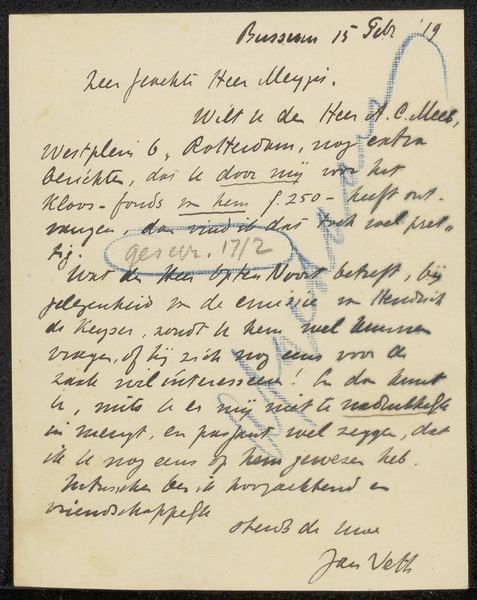 Bussum 15 Febr '19
Zeer geachte Heer Meyjes.
Wilt U den Heer A. C. Mees,
Westplein 6, Rotterdam, nog extra
berichten, dat U door mij voor het
Kloos-fonds van hem f. 250- heeft ont-
vangen, dan vind ik dat toch wel pret-
tig.
geschr. 17/2
Wat den Heer op ten Noort betreft, bij
gelegenheid van de emissie van Hendrick
de Keyser, zoudt U hem wel kunnen
vragen, of hij zich nog eens voor de
zaak wil interesseeren! En dan kunt
U, mits U er mij niet te nadrukkelijk
in mengt, en passant wel zeggen, dat
ik U nog eens op hem gewezen heb.
Intusschen ben ik hoogachtend en
vriendschappelijk
steeds de Uwe
Jan Veth